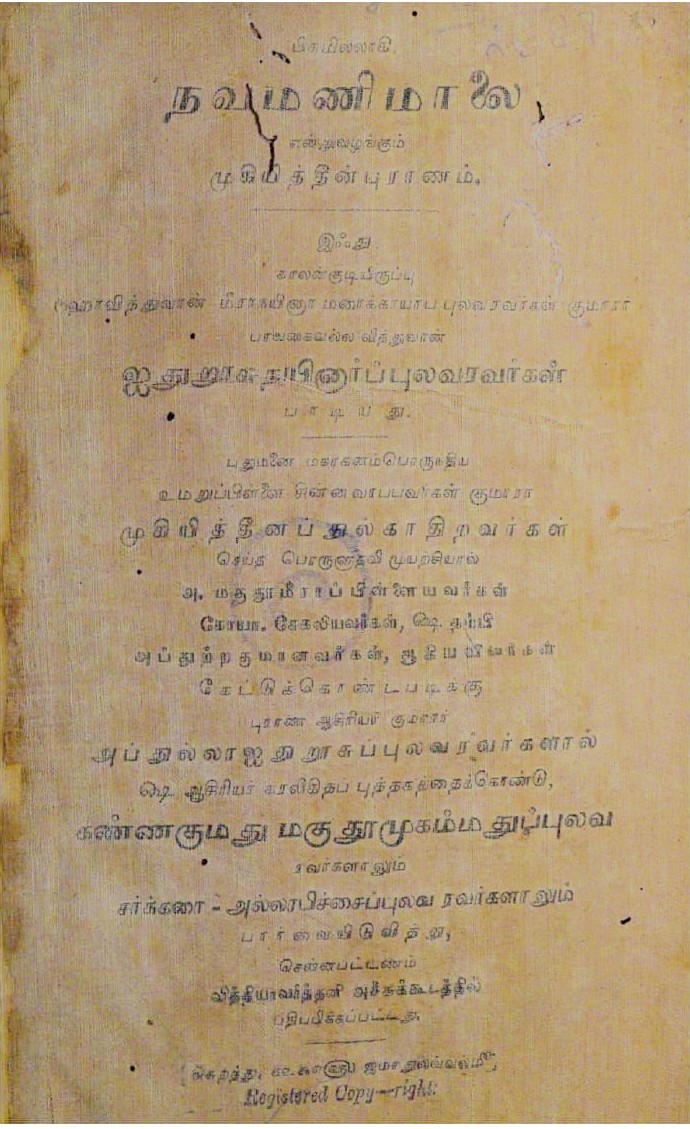 பிசுமில்லாகி.
நவமணிமாலை
என்றுவழங்கும்
முகியித்தீன்புராணம்.
இஃது
காலன்குடியிருப்பு
மீராநயினா மரைக்காயாப புலவரவர்கள் குமாரா
வித்துவான்
ஐதுறூசுநயினார்ப்புலவரவர்கள்
பாடியது.
புதுமனை
உமறுப்பிள்ளை குமாரா
முகியித்தீனப்துல்காதிறவர்கள்
செய்த பொருளுதவி முயற்சியால்
அ. மதுதூமீராப்பிள்ளையவர்கள்
கோயா. சேகலியவர்கள், ௸. தம்பி
அப்துற்றகுமானவர்கள், ஆகியயிவர்கள்
கேட்டுக்கொண்டபடிக்கு
புராண ஆசிரியர் குமாரர்
அப்துல்லாஐதுறூசுப்புலவரவர்களால்
௸. ஆசிரியர் கரலிகிதப் புத்தகத்தைக்கொண்டு,
கண்ணகுமது மகுதூமுகம்மதுப்புலவ
ரவர்களாலும்
அல்லாபிச்சைப்புலவ ரவர்களாலும்
பார்வையிடுவித்து,
சென்னபட்டணம்
அச்சுக்கூடத்தில்
பதிப்பிக்கப்பட்டது.
Registered Copy—right.